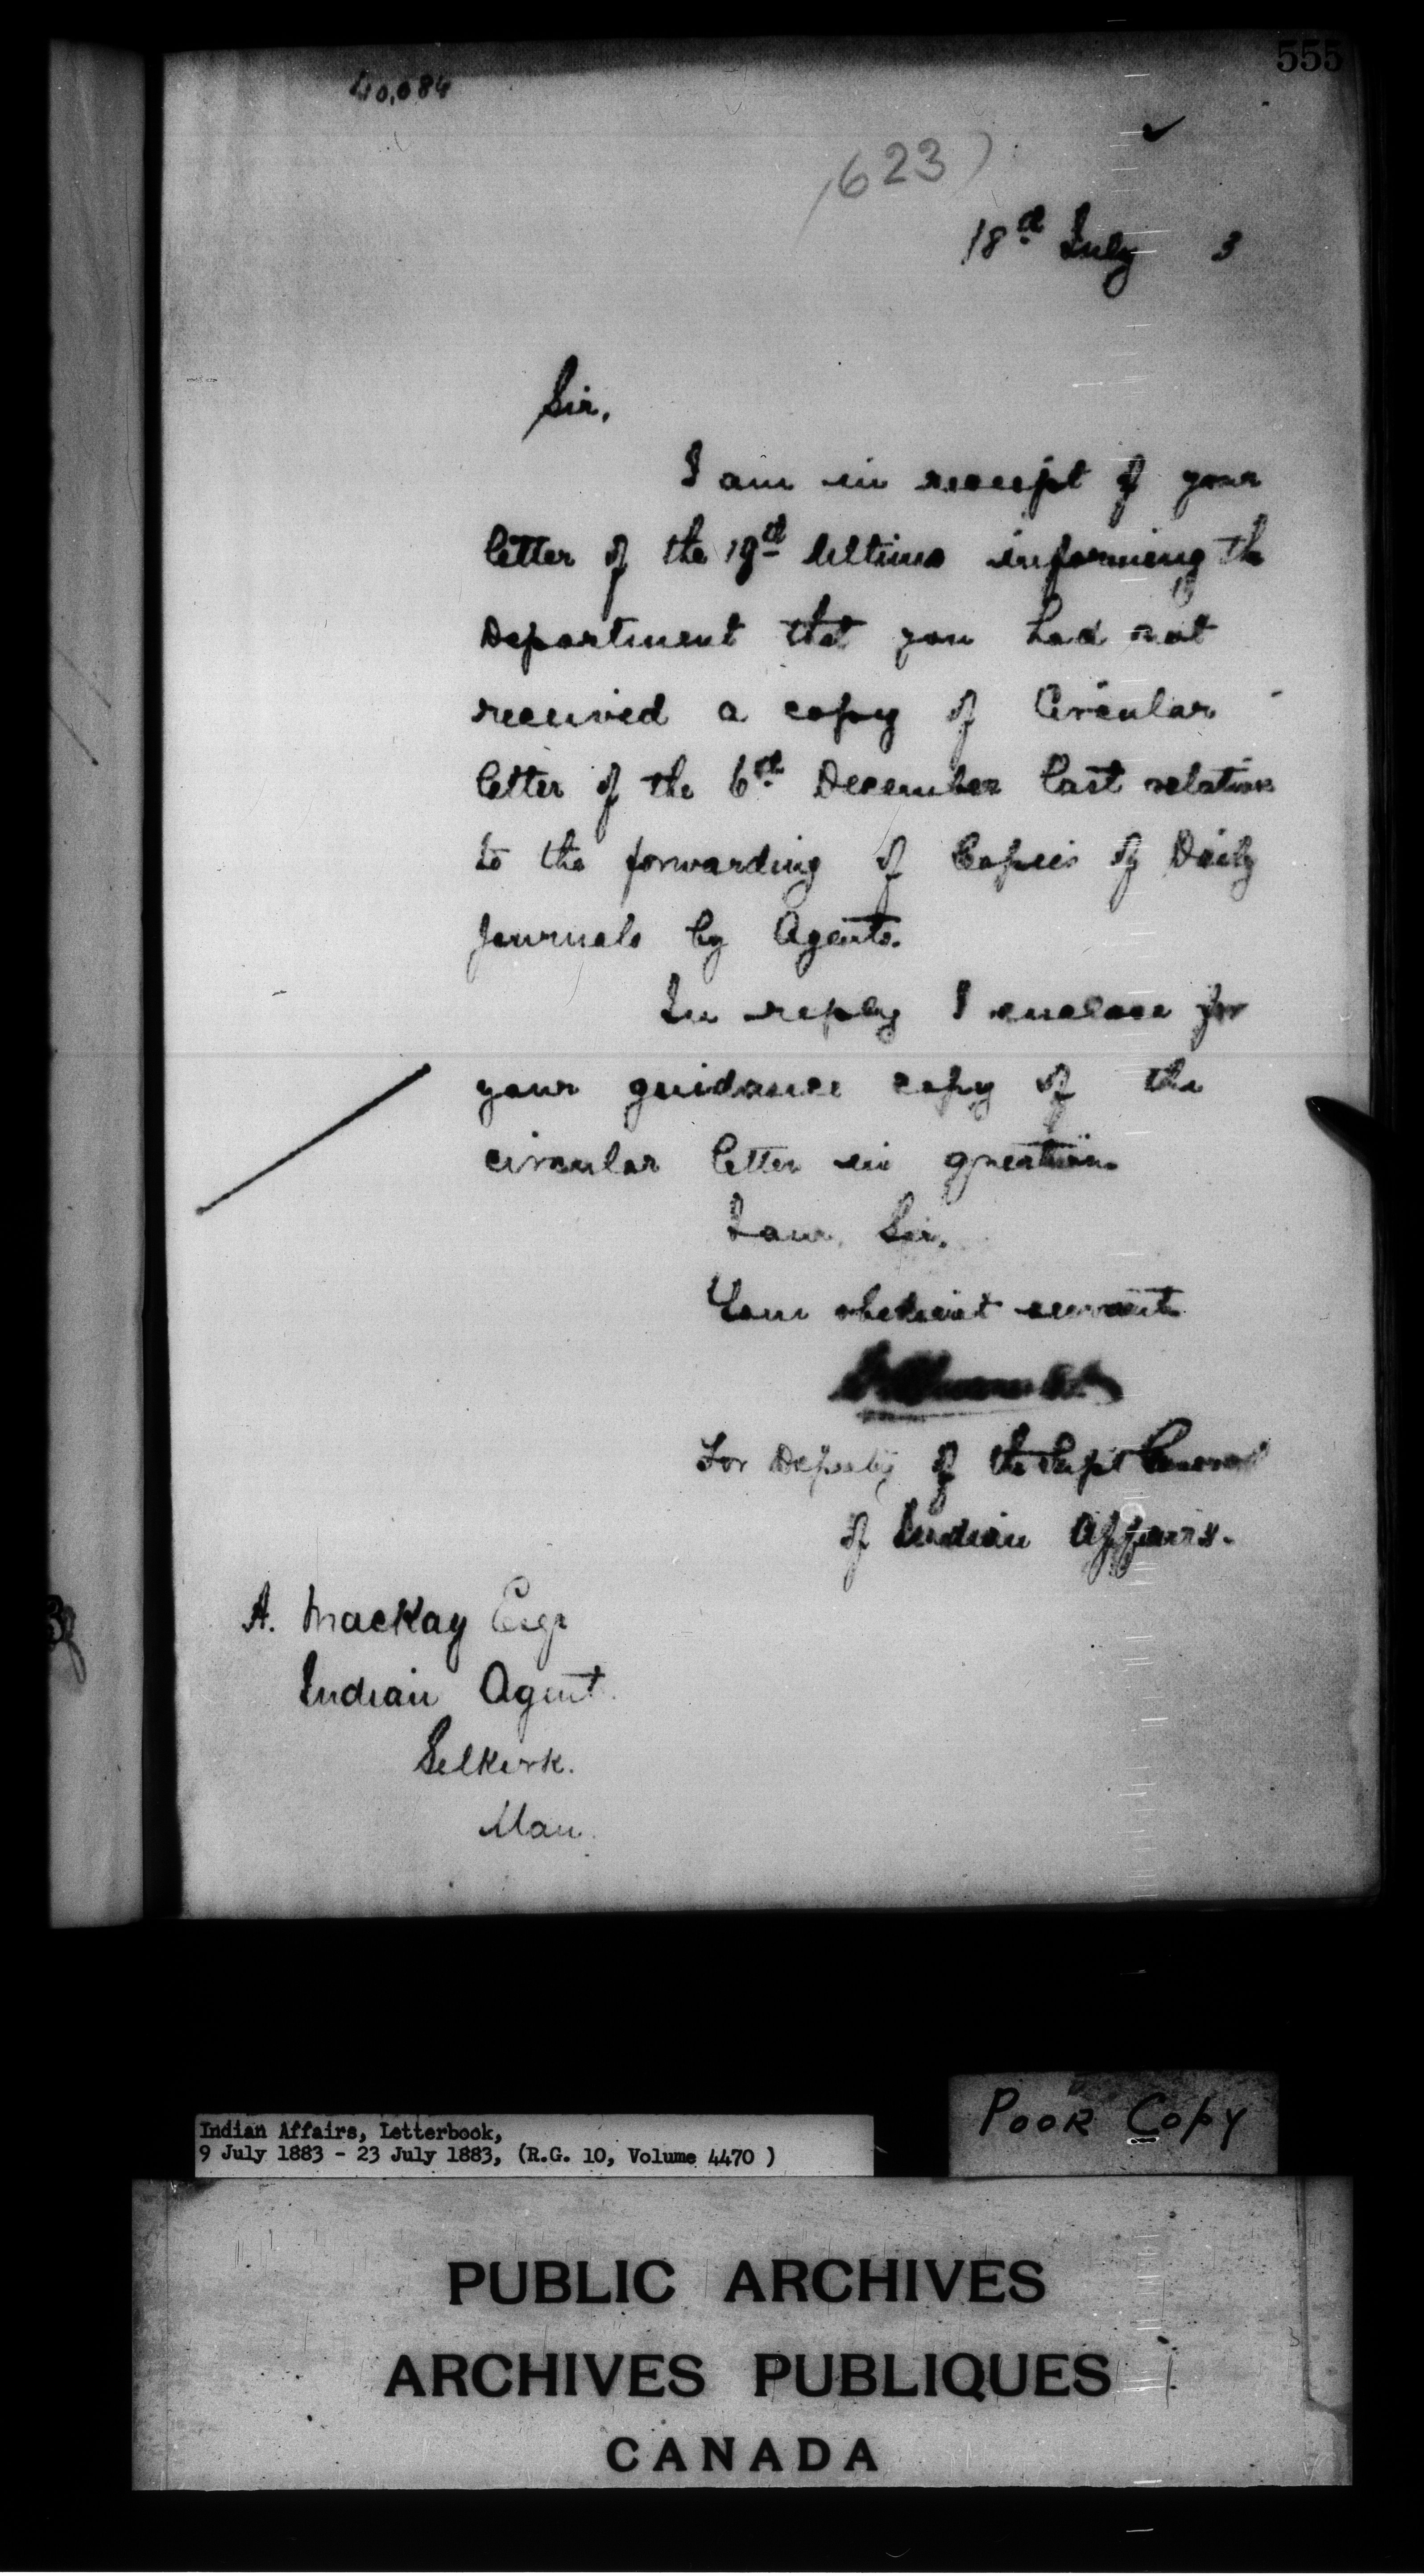 555
40,084
(623)
18th July 3
Sir,
I am in receipt of your
letter of the 19th Ultimo informing the
Department that you had not
received a copy of Circular
letter of the 6th December last relative
to the forwarding of Copies of Daily
Journals by Agents.
In reply I enclose for
your guidance copy of the
circular letter in question.
I am, Sir,
Your obedient servant
For Deputy of the Supt General
of Indian Affairs.
A. MacKay Esqr
Indian Agent
Selkirk.
Man.
Poor Copy
Indian Affairs, Letterbook,
9 July 1883 - 23 July 1883, (R.G. 10, Volume 4470 )
PUBLIC ARCHIVES
ARCHIVES PUBLIQUES
CANADA